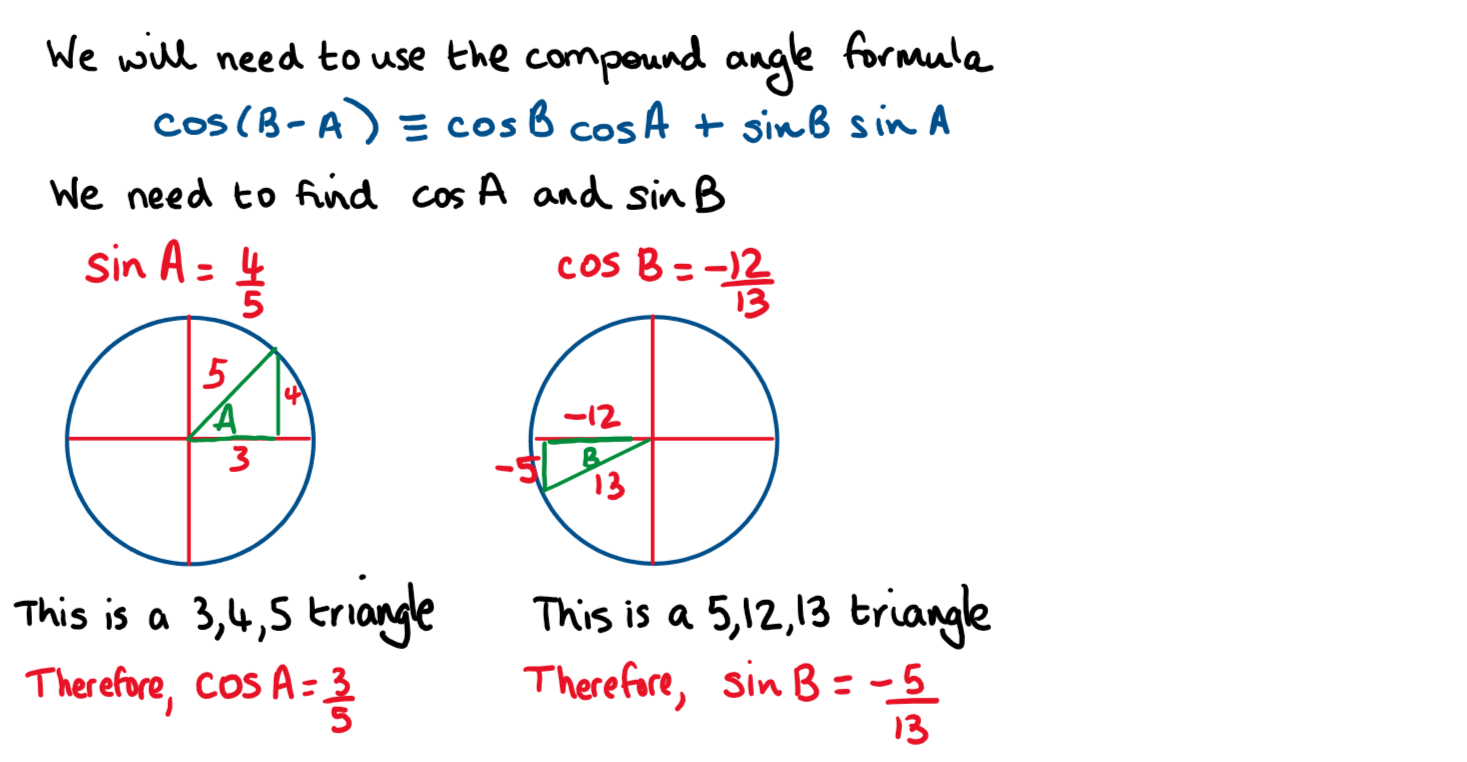 We will need to use the compound angle formula
cos(B-A) ≡ cosB cosA + sinB sinA
We need to find cos A and sin B
sin A = 4/5
cos B = -12/13
5
4
A
3
-12
-5
B
13
This is a 3,4,5 triangle
This is a 5,12,13 triangle
Therefore, cos A = 3/5
Therefore, sin B = -5/13